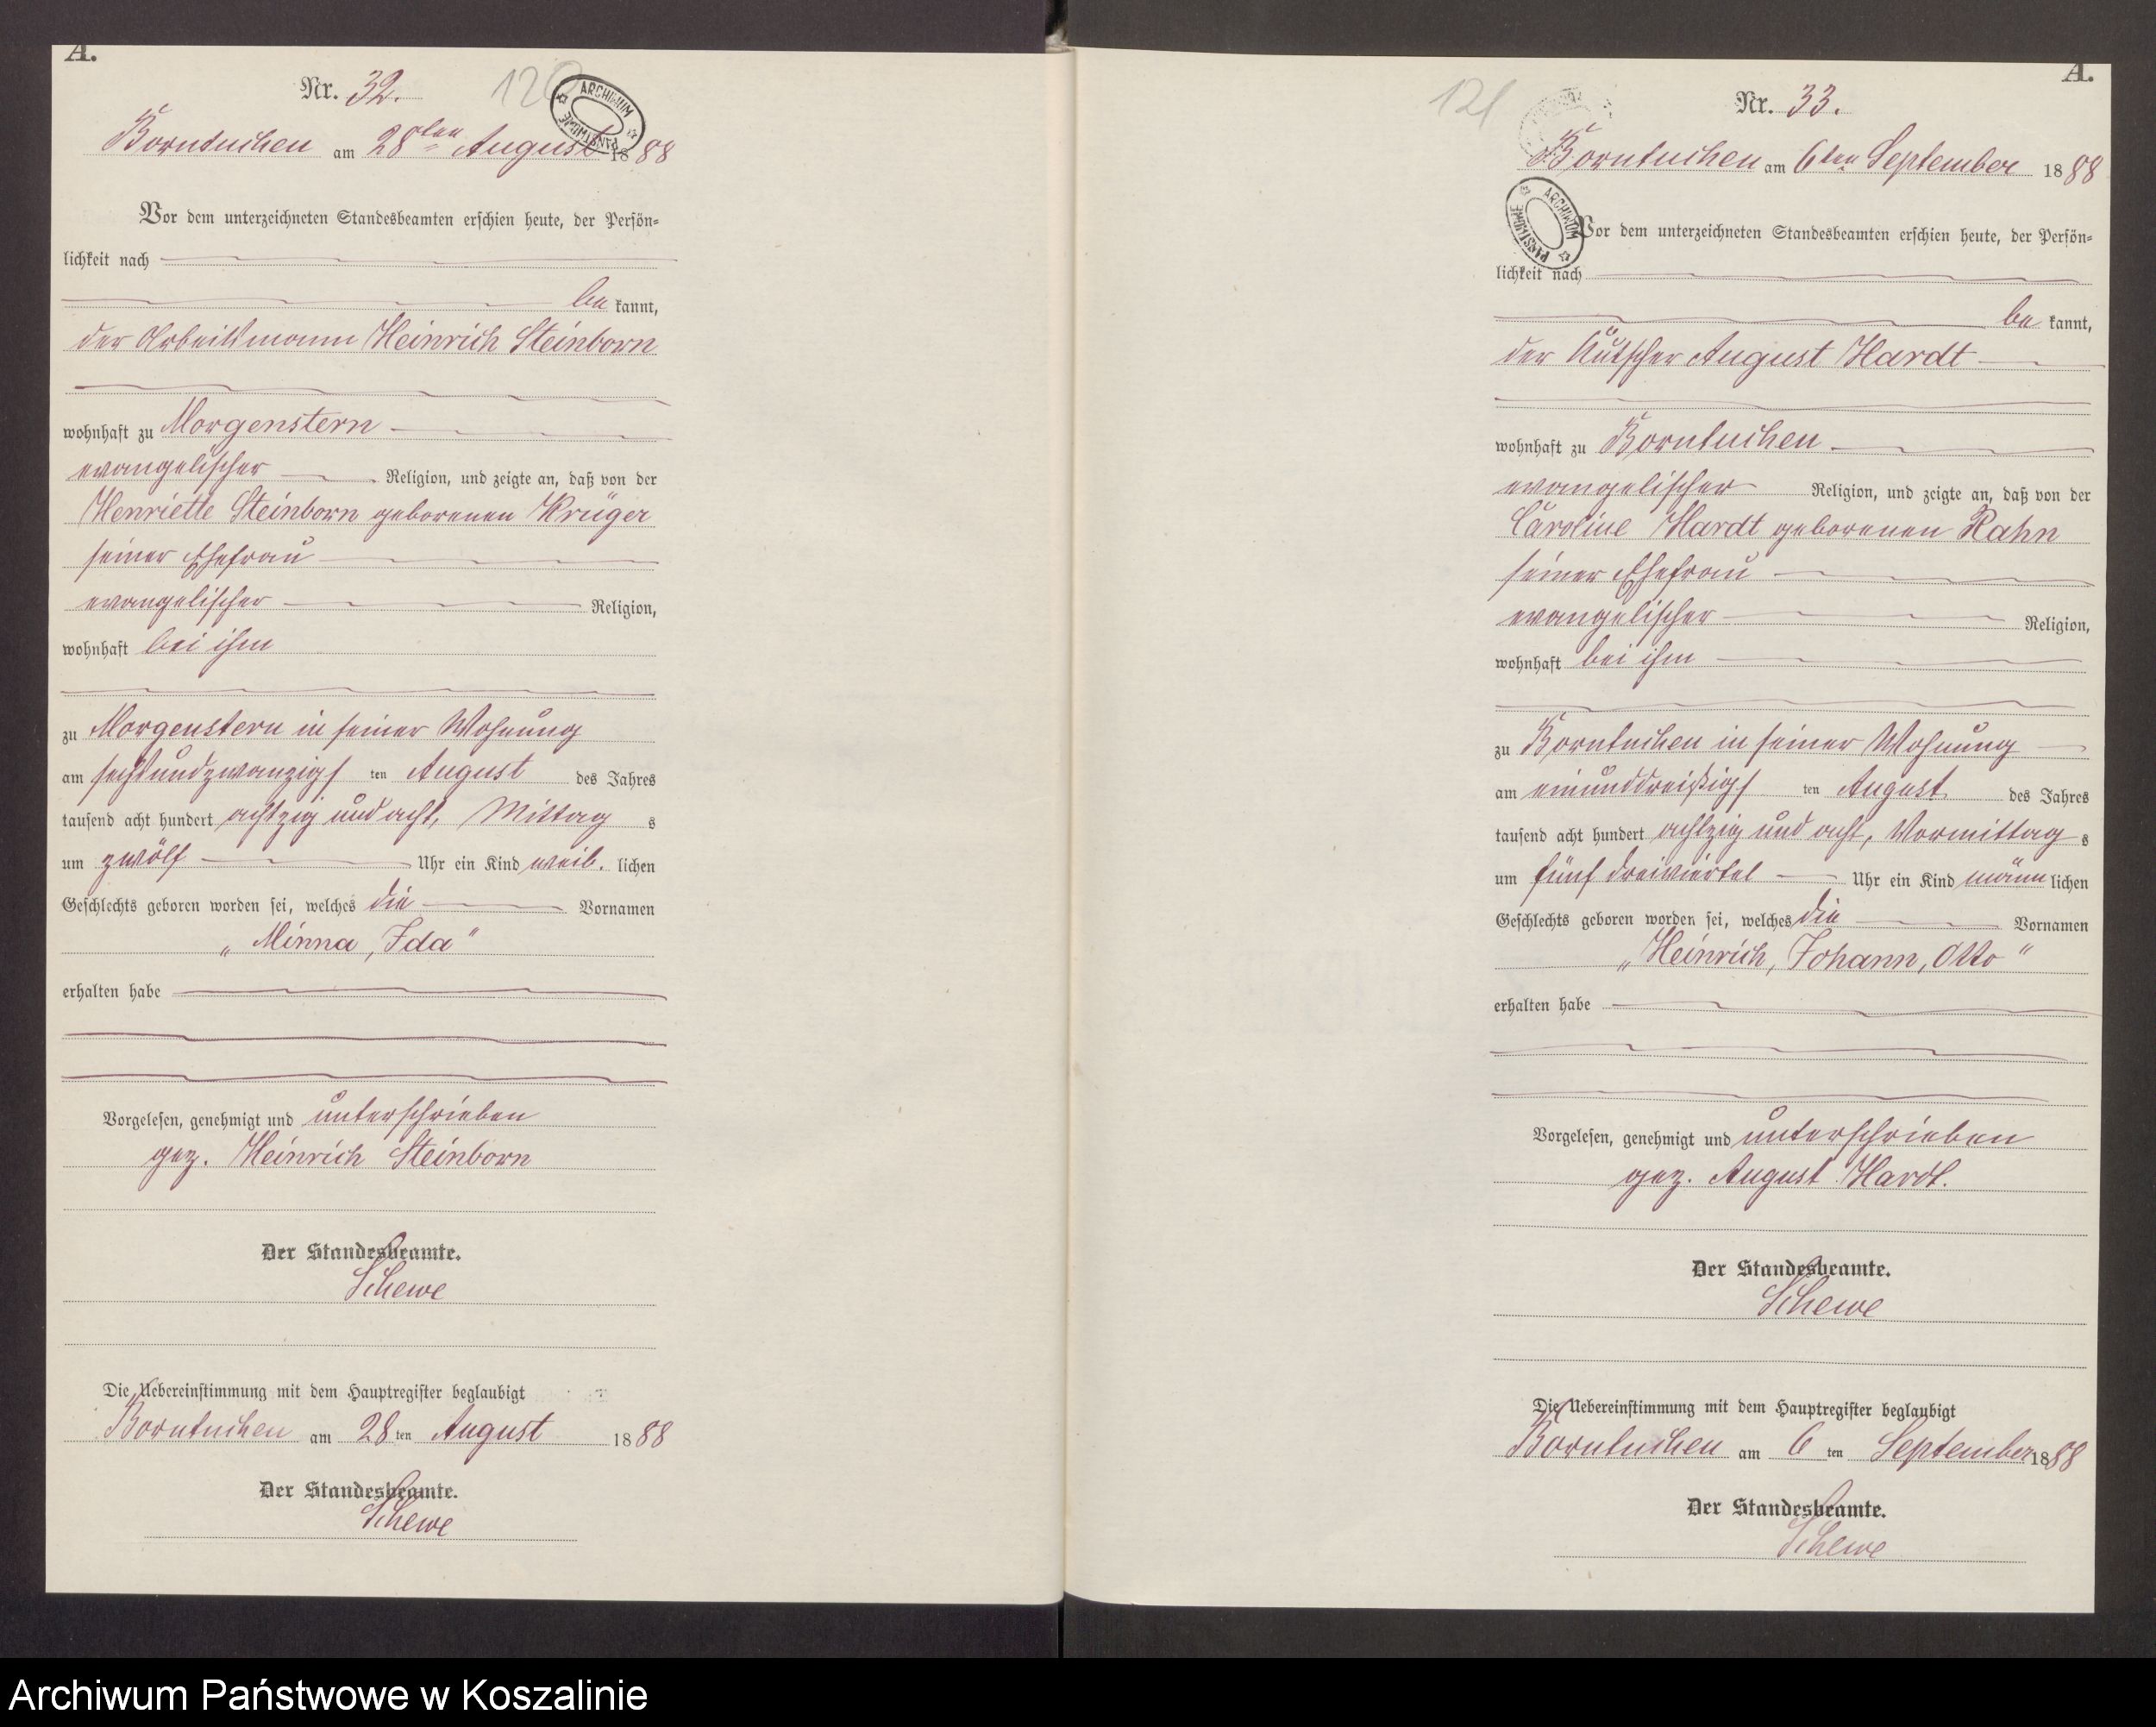 A.
Nr. 32.
120
ARCHIWUM PAŃSTWOWE
Borntuchen am 28ten August 1888
Vor dem unterzeichneten Standesbeamten erschien heute, der Persön=
lichkeit nach
be kannt,
der Arbeitsmann Heinrich Steinborn
wohnhaft zu Morgenstern
evangelischer Religion, und zeigte an, daß von der
Henriette Steinborn geborenen Krüger
seiner Ehefrau
evangelischer Religion,
wohnhaft bei ihm
zu Morgenstern in seiner Wohnung
am sechsundzwanzigs ten August des Jahres
tausend acht hundert achtzig und acht, Mittag s
um zwölf Uhr ein Kind weib. lichen
Geschlechts geboren worden sei, welches die Vornamen
„Minna, Ida"
erhalten habe
Vorgelesen, genehmigt und unterschrieben
gez. Heinrich Steinborn
Der Standesbeamte.
Schewe
Die Uebereinstimmung mit dem Hauptregister beglaubigt
Borntuchen am 28 ten August 1888
Der Standesbeamte.
Schewe
A.
Nr. 33.
121
Borntuchen am 6ten September 1888
ARCHIWUM PAŃSTWOWE
Vor dem unterzeichneten Standesbeamten erschien heute, der Persön=
lichkeit nach
be kannt,
der Kutscher August Hardt
wohnhaft zu Borntuchen
evangelischer Religion, und zeigte an, daß von der
Caroline Hardt geborenen Rahn
seiner Ehefrau
evangelischer Religion,
wohnhaft bei ihm
zu Borntuchen in seiner Wohnung
am einunddreißigs ten August des Jahres
tausend acht hundert achtzig und acht, Vormittag s
um fünf dreiviertel Uhr ein Kind männ lichen
Geschlechts geboren worden sei, welches die Vornamen
„Heinrich, Johann, Otto"
erhalten habe
Vorgelesen, genehmigt und unterschrieben
gez. August Hardt.
Der Standesbeamte.
Schewe
Die Uebereinstimmung mit dem Hauptregister beglaubigt
Borntuchen am 6 ten September 1888
Der Standesbeamte.
Schewe
Archiwum Państwowe w Koszalinie